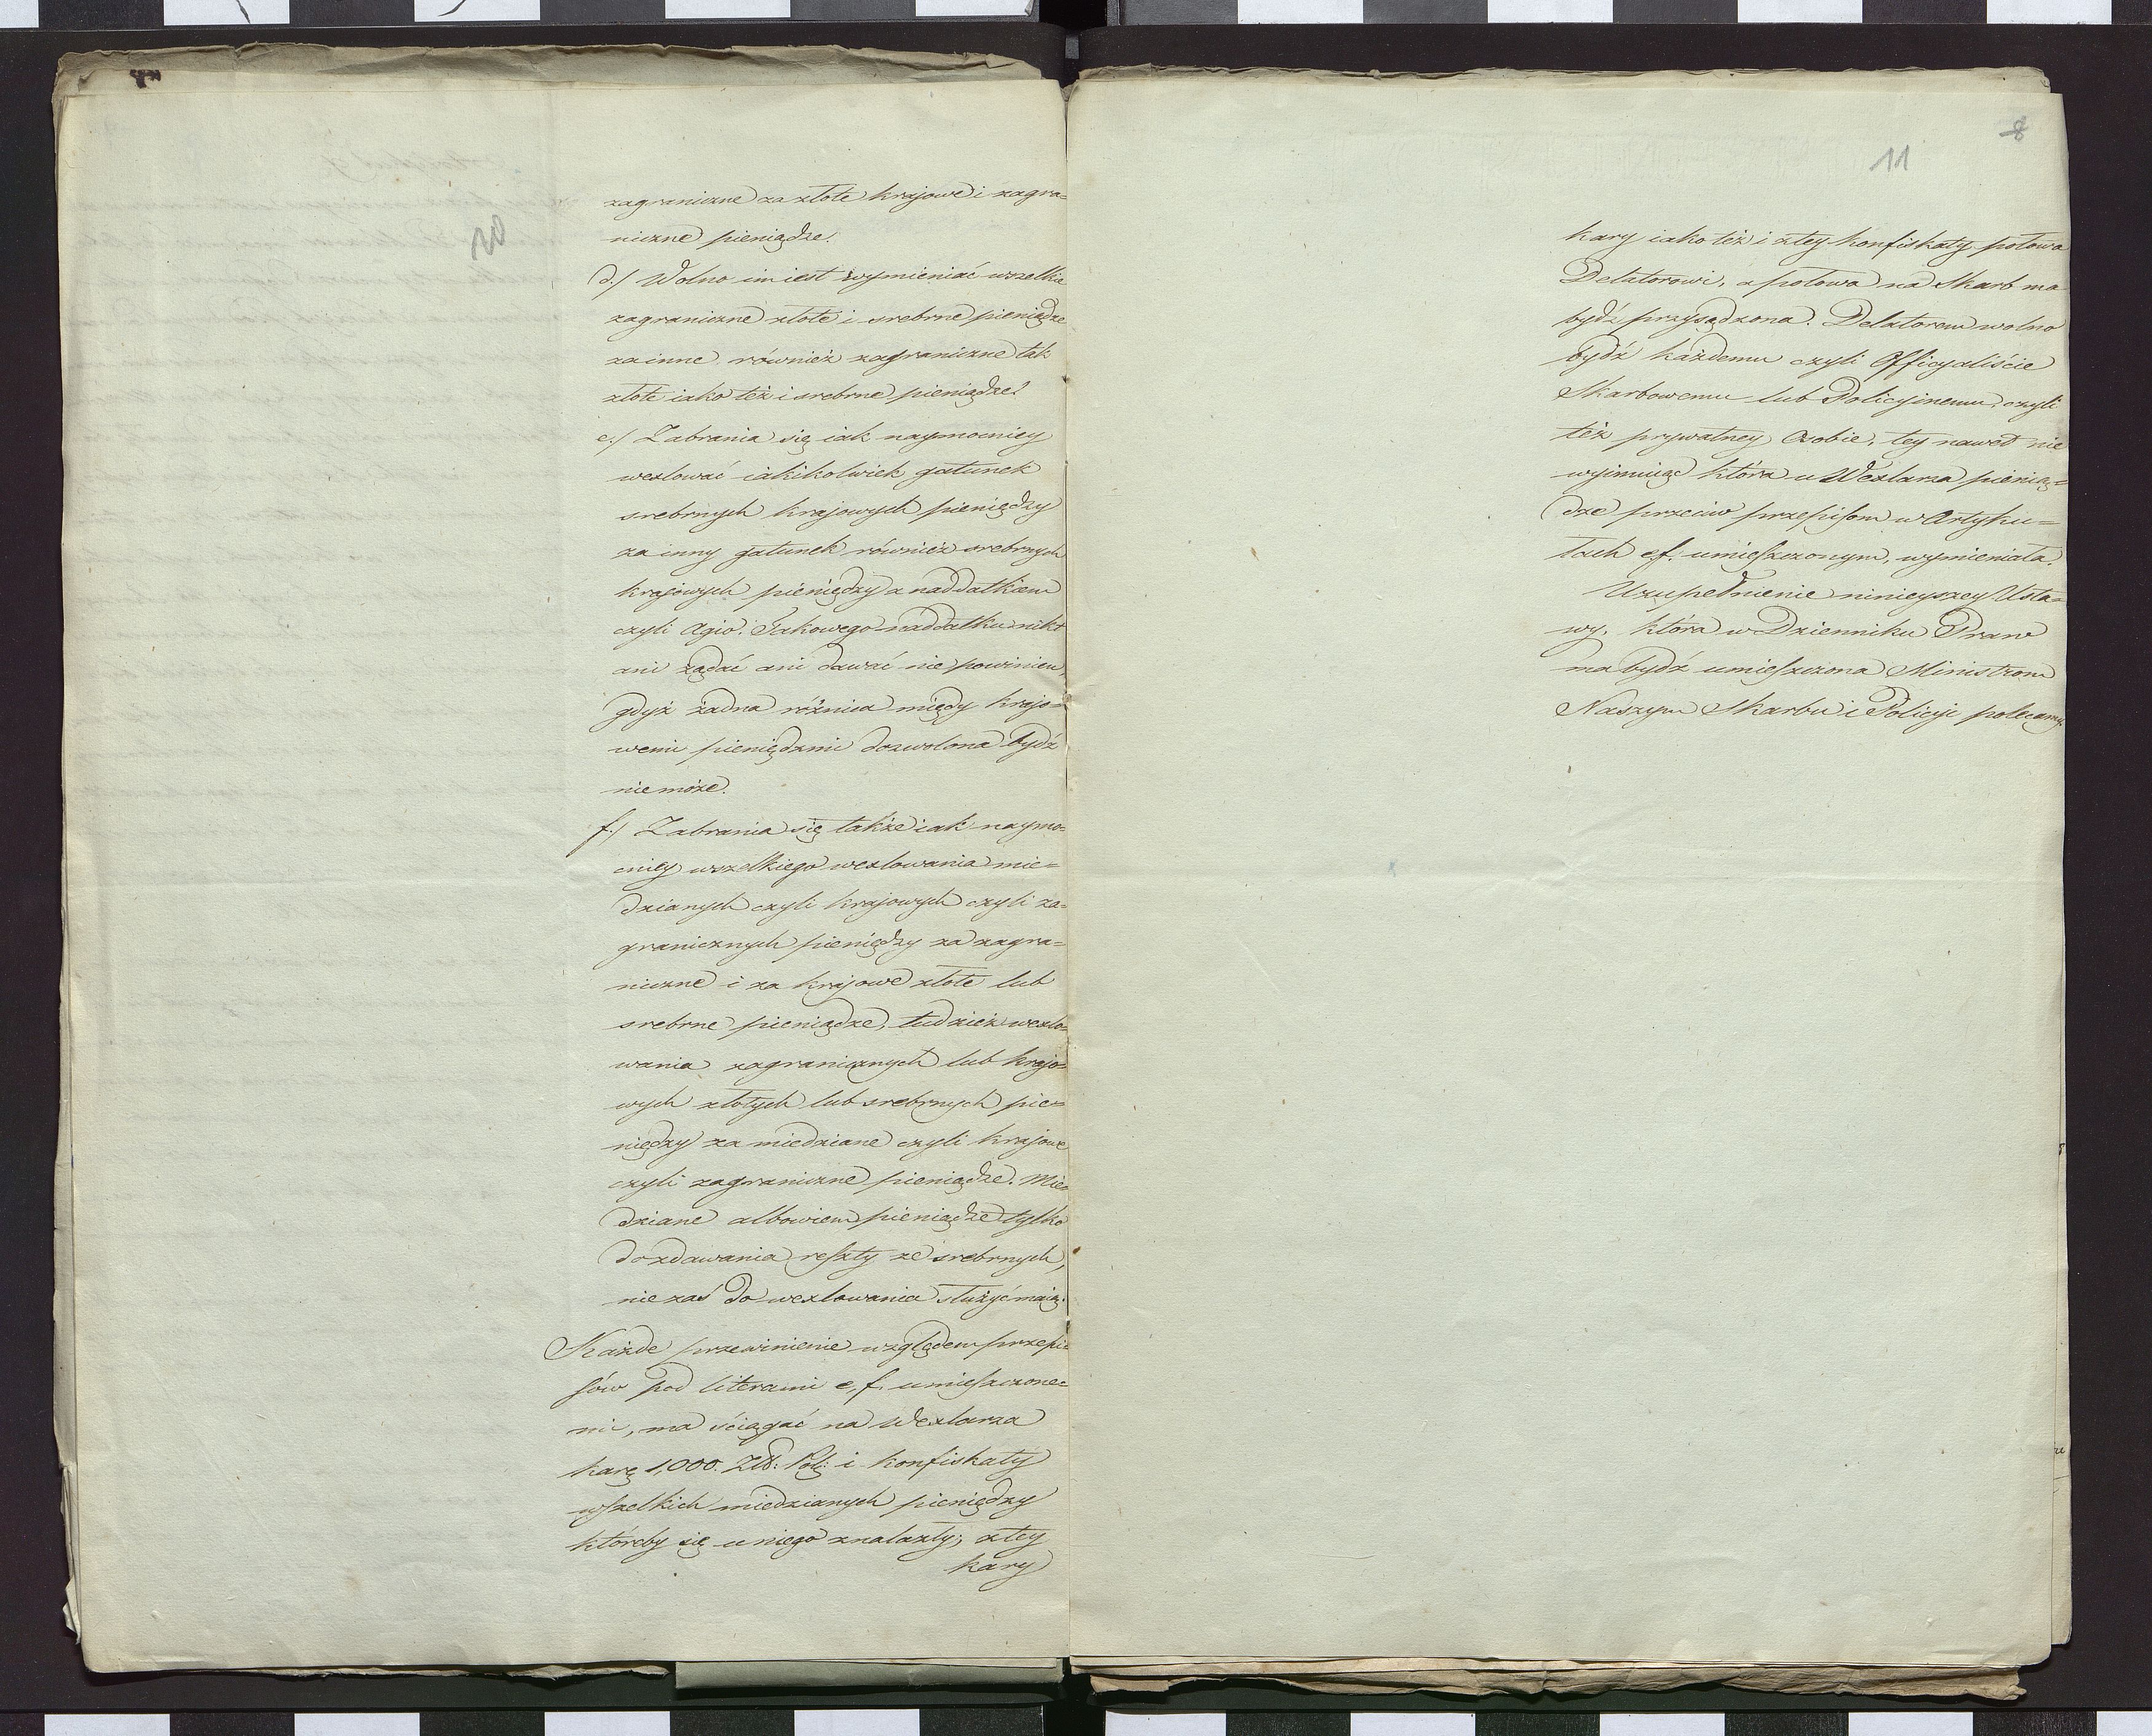 10
zagraniczne za złote krajowe i zagra=
niczne pieniądze.
d./ Wolno im iest wymieniać wszelkie
zagraniczne złote i srebrne pieniądze
za inne również zagraniczne tak
złote iako też i srebrne pieniądze.
e./ Zabrania się iak naymocniey
wexlować iakikolwiek gatunek
srebrnych krajowych pieniędzy
za inny gatunek również srebrnych
krajowych pieniędzy z naddatkiem
czyli Agio. Takowego naddatku nikt
ani żądać ani dawać nie powinien,
gdyż żadna różnica między krajo=
wemi pieniędzmi dozwolona bydź
nie może.
f./ Zabrania się także iak naymo=
cniey wszelkiego wexlowania mie=
dzianych czyli krajowych czyli za=
granicznych pieniędzy za zagra=
niczne i za krajowe złote lub
srebrne pieniądze, tudzież wexlo=
wania zagranicznych lub krajo=
wych złotych lub srebrnych pie=
niędzy za miedziane czyli krajowe
czyli zagraniczne pieniądze. Mie=
dziane albowiem pieniądze tylko
do zdawania reszty ze srebrnych,
nie zaś do wexlowania służyć maią.
Każde przewinienie względem przepi=
sów pod literami e, f. umieszczone=
mi, ma ściągać na Wexlarza
karę 1,000. Złł: Pol: i konfiskaty
wszelkich miedzianych pieniędzy
któreby się u niego znalazły; z tey
kary
8
11
kary iako też i z tey konfiskaty połowa
Delatorowi, a połowa na Skarb ma
bydź przysądzona. Delatorem wolno
bydź każdemu czyli Officyaliście
Skarbowemu lub Policyinemu, czyli
też prywatney Osobie, tey nawet nie
wyimuiąc która u Wexlarza pienią=
dze przeciw przepisom w Artyku=
łach e, f. umieszczonym, wymieniała.
Uzupełnienie ninieyszey Usta=
wy, która w Dzienniku Praw
ma bydź umieszczona Ministrom
Naszym Skarbu i Policyi polecamy.